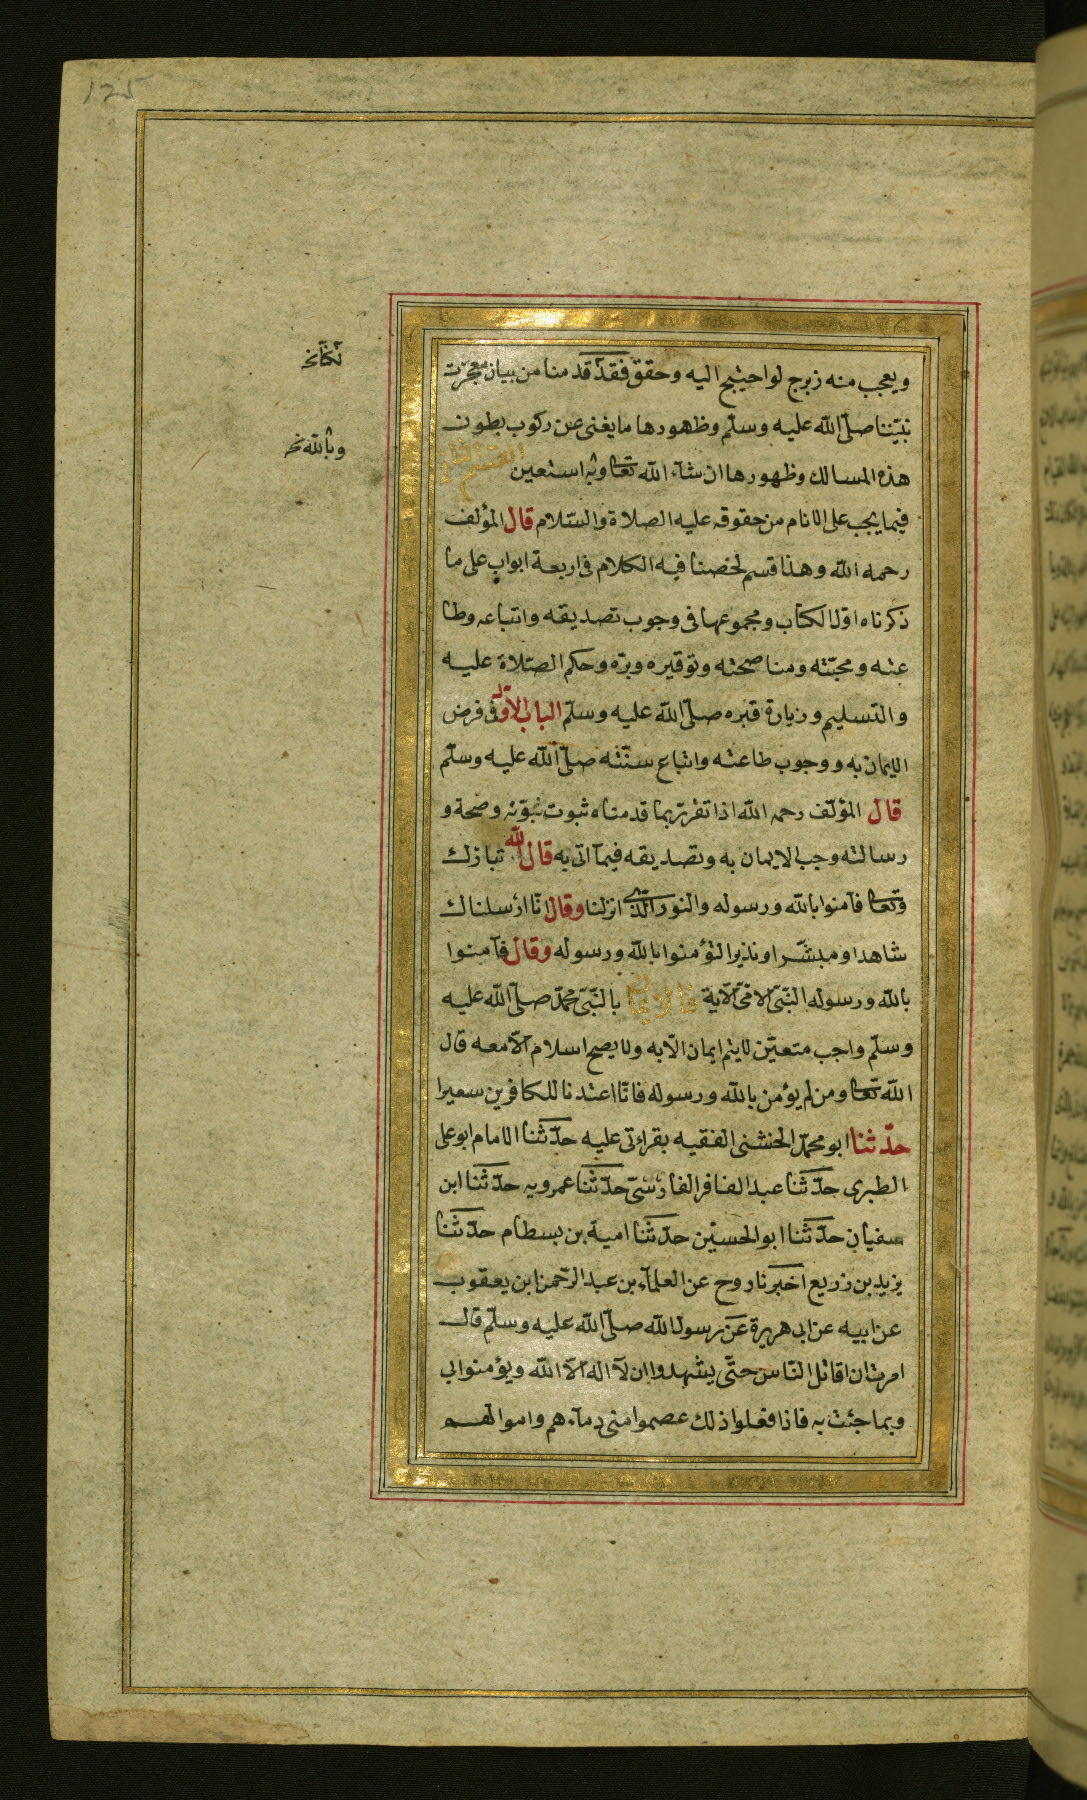 125
ويعجب منه زبرج لو احتيج اليه وحقق فقد قدمنا من بيان معجزت
نبيّنا صلّى الله عليه وسلّم وظهورها ما يغنى عن ركوب بطون
هذه المسالك وظهورها ان شاء الله تعالى وبه استعين القسم الثاني
فيما يجب على الانام من حقوقه عليه الصلاة والسّلام قال المؤلف
رحمه الله وهذا قسم لخصنا فيه الكلام فى اربعة ابواب على ما
ذكرناه اوّل الكتاب ومجموعها فى وجوب تصديقه واتباعه وطا
عته ومحبّته ومناصحته وتوقيره وبرّه وحكم الصّلاة عليه
والتسليم وزيارة قبره صلّى الله عليه وسلّم الباب الاوّل فى فرض
الايمان به ووجوب طاعته واتباع سنّته صلّى الله عليه وسلّم
قال المؤلّف رحمه الله اذا تقرّر بما قدمناه ثبوت نبوّته وصحة و
رسالته وجب الايمان به وتصديقه فيما اتى به قال الله تبارك
وتعالى فآمنوا بالله ورسوله والنور الذى انزلنا وقال انّا ارسلناك
شاهدا ومبشّرا ونذيرا لتؤمنوا بالله ورسوله وقال فآمنوا
بالله ورسوله النّبىّ الامّىّ الآية فالايمان بالنّبىّ محمّد صلّى الله عليه
وسلّم واجب متعيّن لايتم ايمان الّا به ولا يصح اسلام الّا معه قال
الله تعالى ومن لم يؤمن بالله ورسوله فانّا اعتدنا للكافرين سعيرا
حدّثنا ابو محمّد الخشنى الفقيه بقراءتى عليه حدّثنا الامام ابو على
الطبرى حدّثنا عبد الغافر الفارسىّ حدّثنا عمرويه حدّثنا ابن
سفيان حدّثنا ابو الحسين حدّثنا امية بن بسطام حدّثنا
يزيد بن زريع اخبرنا روح عن العلاء بن عبد الرّحمن ابن يعقوب
عن ابيه عن ابى هريرة عن رسول الله صلّى الله عليه وسلّم قال
امرت ان اقاتل النّاس حتّى يشهدوا ان لآ اله الّا الله ويؤمنوا بى
وبما جئت به فاذا فعلوا ذلك عصموا منى دماءهم واموالهم
وبالله نخ